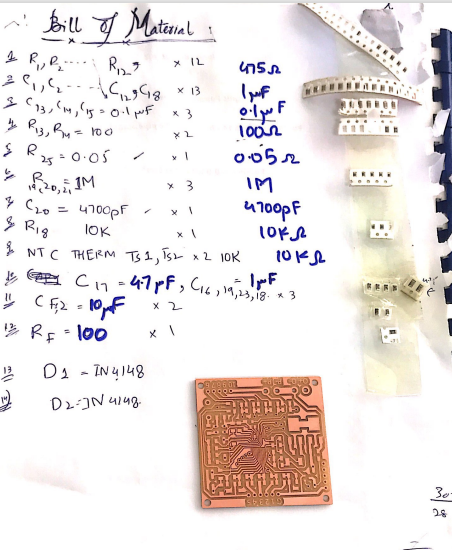 Bill of Material :
1 R1, R2 .... R12, × 12 475Ω
2 C1, C2 .... C12, C18 × 13 1μF
3 C13, C14, C15 = 0.1μF × 3 0.1μF
4 R13, R14 = 100 × 2 100Ω
5 R25 = 0.05 ✓ × 1 0.05Ω
6 R19,20,21 = 1M × 3 1M
7 C20 = 4700pF ✓ × 1 4700pF
8 R18 10K × 1 10KΩ
9 NTC THERM TS1, TS2 × 2 10K 10KΩ
10 C17 = 4.7μF, C16,19,23,18. = 1μF × 3
11 CF,2 = 10μF × 2
12 RF = 100 × 1
13 D1 = IN4148
14) D2 = IN4148
30
28